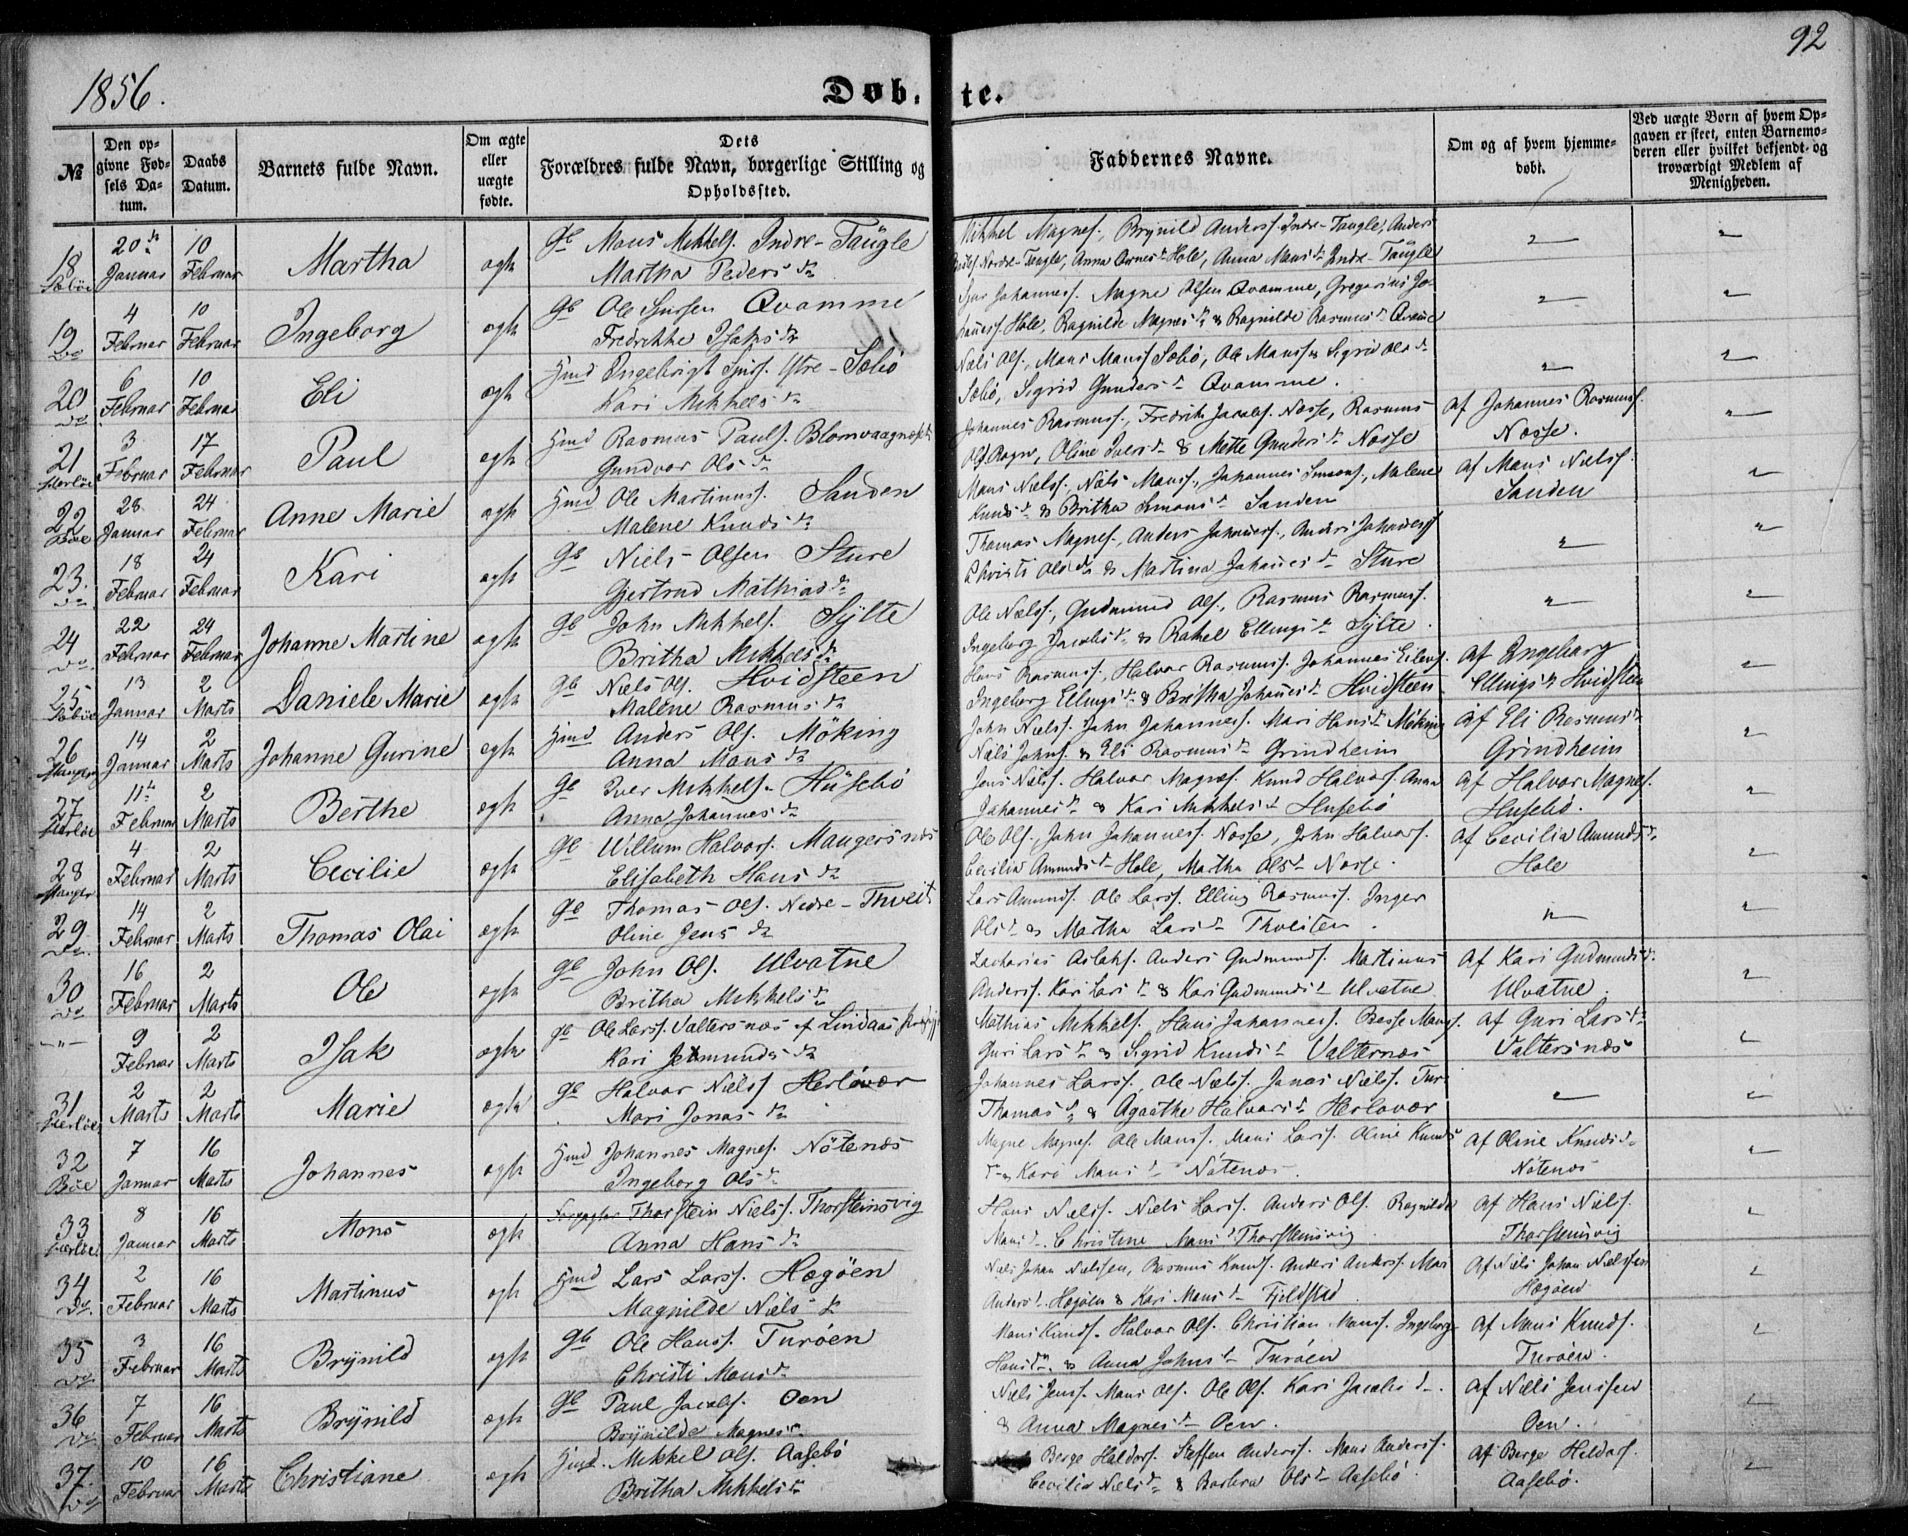 1856.
Døb.
te.
92
№
Den opgivne Fødsels Datum.
Daabs Datum.
Barnets fulde Navn.
Om ægte eller uægte fødte.
Dets Forældres fulde Navn, borgerlige Stilling og Opholdssted.
Faddernes Navne.
Om og af hvem hjemmedøbt.
Ved uægte Børn af hvem Opgaven er skeet, enten Barnemoderen eller hvilket bekjendt og troværdigt Medlem af Menigheden.
18 20 Januar 10 Februar Martha ægte Gb Mons Mikkels. Indre-Taugle
Martha Peders dr
Mikkel Magnes., Brynild Anderss. Indre-Taugle, Anders
Nordre-Taugle, Anna Hole, Anna Mons dr Indre-Taugle
19 Do 4 Februar 10 Februar Ingeborg ægte Gb Ole Sjursen Qvamme
Fredrikke Isaks dr
Sjur Johanness. Magne Olsen Qvamme, Gregorius Jo-
hanness. Hole, Ragnilde Magnes dr & Ragnilde Rasmus dr Qvamme
20 Do 6 Februar 10 Februar Eli ægte Huusmd Ingebrigt Sjurs. Ytre-Sæbø
Kari Mikkels dr
Niels Ols., Mons Monss. Sæbø, Ole Monss. & Sigrid Ols dr
Sæbø, Sigrid Gunders dr Qvamme.
21 Herløe 3 Februar 17 Februar Paul ægte Huusmd Rasmus Pauls. Blomvaagnæsset
Gundvor Ols dr
Johannes Rasmuss., Fredrik Jacobs. Nosse, Rasmus
Ols. Oline Ivers dr & Mette Gunders dr Nosse
af Johannes Rasmuss.
Nosse.
22 Bøe 28 Januar 24 Februar Anne Marie ægte Huusmd Ole Martinuss. Sanden
Malene Knuds dr
Mons Nielss., Niels Monss., Johannes Simons., Malene
Knuds dr & Britha Simons dr Sanden
af Mons Nielss.
Sanden
23. Do 18 Februar 24 Februar Kari ægte Gb Niels Olsen Sture
Gjertrud Mathias dr
Thomas Magnes., Anders Johanness., Anders Johanness.
Christi Ols dr & Martina Johannes dr Sture
24 Do 22 Februar 24 Februar Johanne Martine ægte Gb John Mikkels. Sylte
Britha Mikkels dr
Ole Nielss., Gudmund Ols., Rasmus Rasmuss.
Ingeborg Jacobs dr & Rakel Ellings dr Sylte.
25 Sæbøe 13 Januar 2 Marts Daniele Marie ægte Gb Niels Ols. Hvidsteen
Malene Rasmus dr
Hans Rasmuss., Halvor Rasmuss. Johannes Eilens.
Ingeborg Ellings dr & Britha Johannes dr Hvidsteen
af Ingeborg
Ellings dr Hvidsteen
26 Manger 14 Januar 2 Marts Johanne Gurine ægte Huusmd Anders Ols. Möking
Anna Mons dr
John Nielss. John Johanness. Mari Hans dr Möking
Niels Johns. & Eli Rasmus dr Grindheim
af Eli Rasmus dr
Grindheim
27 Herløe 11 Februar 2 Marts Berthe ægte Gb Iver Mikkels. Husebö
Anna Johannes dr
Jens Nielss. Halvor Magnes. Knud Halvors. Anna
Johannes dr & Kari Mikkels dr Husebö
af Halvor Magnes.
Husebö.
28 Manger 4 Februar 2 Marts Cecilie ægte Gb Willum Halvors. Mangersnæs
Elisabeth Hans dr
Ole Ols., John Johanness. Nosse, John Halvors.
Cecilia Amunds dr Hole, Martha Ols dr Nosse.
af Cecilia Amunds dr
Hole
29 Do. 14 Februar 2 Marts Thomas Olai ægte Gb Thomas Ols. Nedre-Thveit
Oline Jens dr
Lars Amunds. Ole Larss. Elling Rasmuss. Inger
Ols dr & Martha Lars dr Thveiten.
30 Do 16 Februar 2 Marts Ole ægte Gb John Ols. Ulvatne
Britha Mikkels dr
Zacharias Aslaks. Anders Gudmunds. Martinus
Anderss. Kari Lars dr & Kari Gudmunds dr Ulvatne
af Kari Gudmunds dr.
Ulvatne.
-"- 9 Februar 2 Marts Isak ægte Gb Ole Larss. Valtersnæs af Lindaas
Kari Jetmunds dr
Mathias Mikkels. Hans Johanness. Basse Monss.
Guri Lars dr & Sigrid Knuds dr Valternæs
af Guri Lars dr
Valtersnæs
31 Herløe 2 Marts 2 Marts Marie ægte Gb Halvor Nielss. Herløvær
Mari Jonas dr
Johannes Larss., Ole Nielss. Jonas Nielss.
Thomas dr & Agathe Halvors dr Herløvær
32 Bøe 7 Januar 16 Marts Johannes ægte Huusmd Johannes Magnes. Nötenæs
Ingeborg Ols dr
Magne Magnes. Ole Monss. Mons Larss. Oline Knuds
dr & Kari Mons dr Nötenæs.
af Oline Knuds dr
Nötenæs
33 Herløe 8 Januar 16 Marts Mons ægte Forpagter Thorstein Nielss. Thorsteinsvig
Anna Hans dr
Hans Nielss. Niels Larss. Anders Ols. Ragnilde
Mons dr. Christine Mons dr Thorsteinsvig.
af Hans Nielss.
Thorsteinsvig
34 Do. 2 Februar 16 Marts Martinus ægte Huusmd Lars Larss. Hægöen
Magnilde Niels dr
Niels Johan Nielssen, Rasmus Knuds. Anders Anderss. Mari
Anders dr Hægöen & Kari Mons dr Fjeldstad
af Niels Johan Nielssen
Hægöen
35 Do. 3 Februar 16 Marts Brynild ægte Gb Ole Hanss. Turöen
Christi Mons dr
Mons Knuds. Halvor Ols. Christian Monss. Ingeborg
Hans dr & Anna Johns dr Turöen
af Mons Knuds.
Turöen.
36 Do 7 Februar 16 Marts Brynild ægte Gb Paul Jacobs. Oen
Brynilde Magnes dr
Niels Jenss. Mons Ols. Ole Ols. Kari Jacobs dr.
& Anna Magnes dr Oen.
af Niels Jenssen
Oen.
37. Do 10 Februar 16 Marts Christiane ægte Huusmd. Mikkel Ols. Aasebö
Britha Mikkels dr
Berge Haldors. Steffen Anderss. Mons Anderss.
Cecilia Niels dr & Barbra Ols dr Aasebö.
af Berge Heldors.
Aasebö.